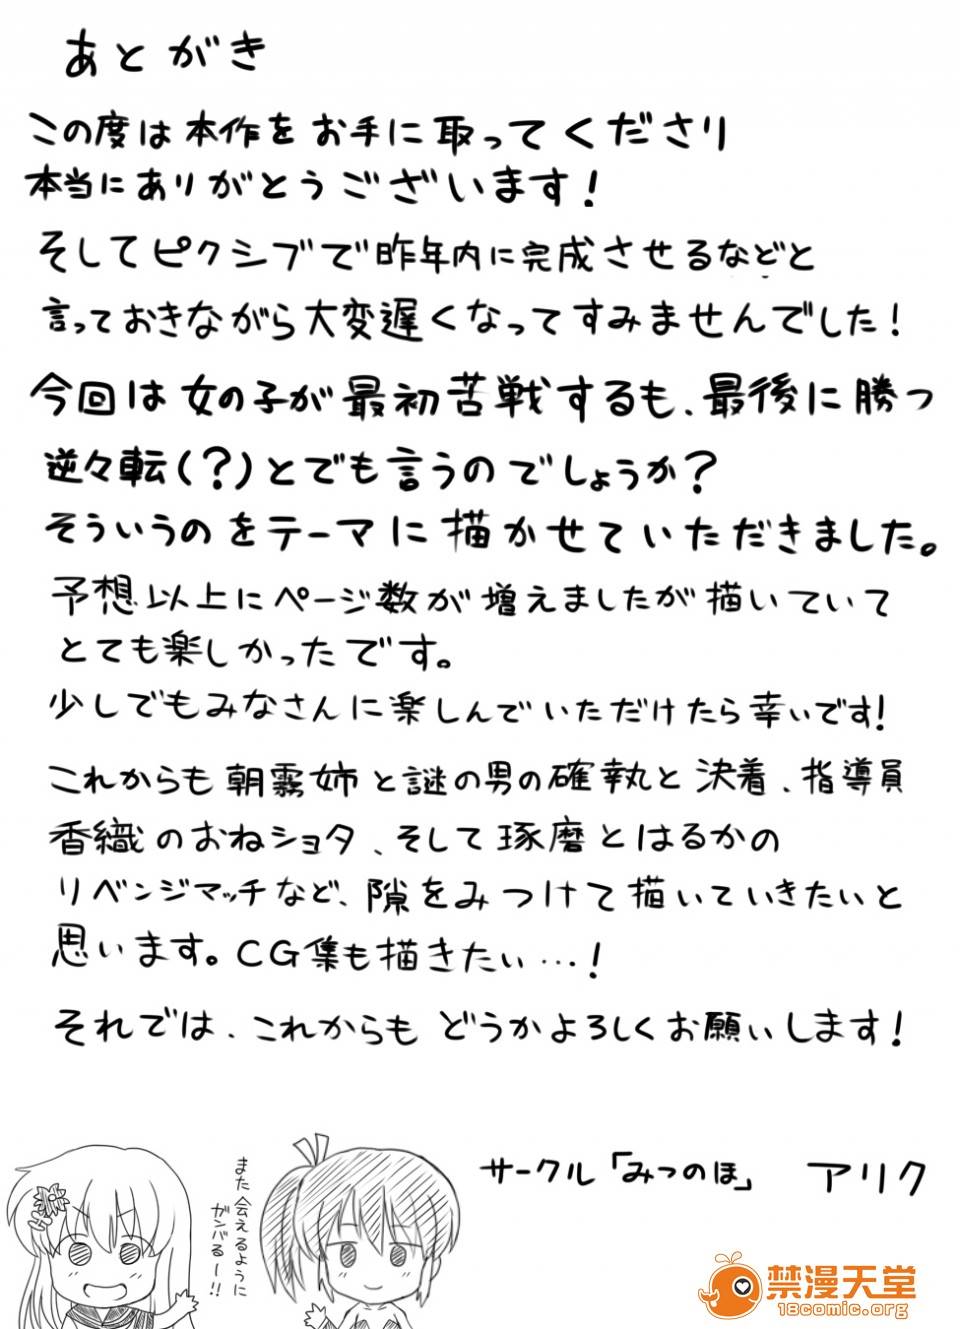 あとがき
この度は本作をお手に取ってくださり
本当にありがとうございます!
そしてピクシブで昨年内に完成させるなどと
言っておきながら大変遅くなってすみませんでした!
今回は女の子が最初苦戦するも、最後に勝つ
逆々転(?)とでも言うのでしょうか?
そういうのをテーマに描かせていただきました。
予想以上にページ数が増えましたが描いていて
とても楽しかったです。
少しでもみなさんに楽しんでいただけたら幸いです!
これからも朝霧姉と謎の男の確執と決着、指導員
香織のおねショタ、そして琢磨とはるかの
リベンジマッチなど、隙をみつけて描いていきたいと
思います。CG集も描きたい…!
それでは、これからもどうかよろしくお願いします!
サークル「みつのほ」 アリク
また会えるように
ガンバるー!!
禁漫天堂
18comic.org